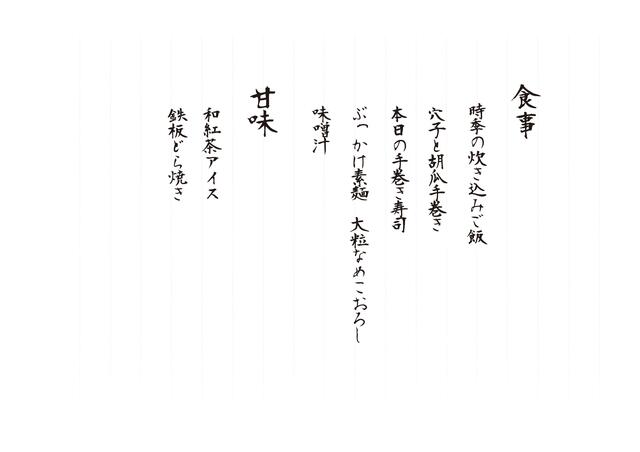 食事
時季の炊き込みご飯
穴子と胡瓜手巻き
本日の手巻き寿司
ぶっかけ素麺　大粒なめこおろし
味噌汁
甘味
和紅茶アイス
鉄板どら焼き